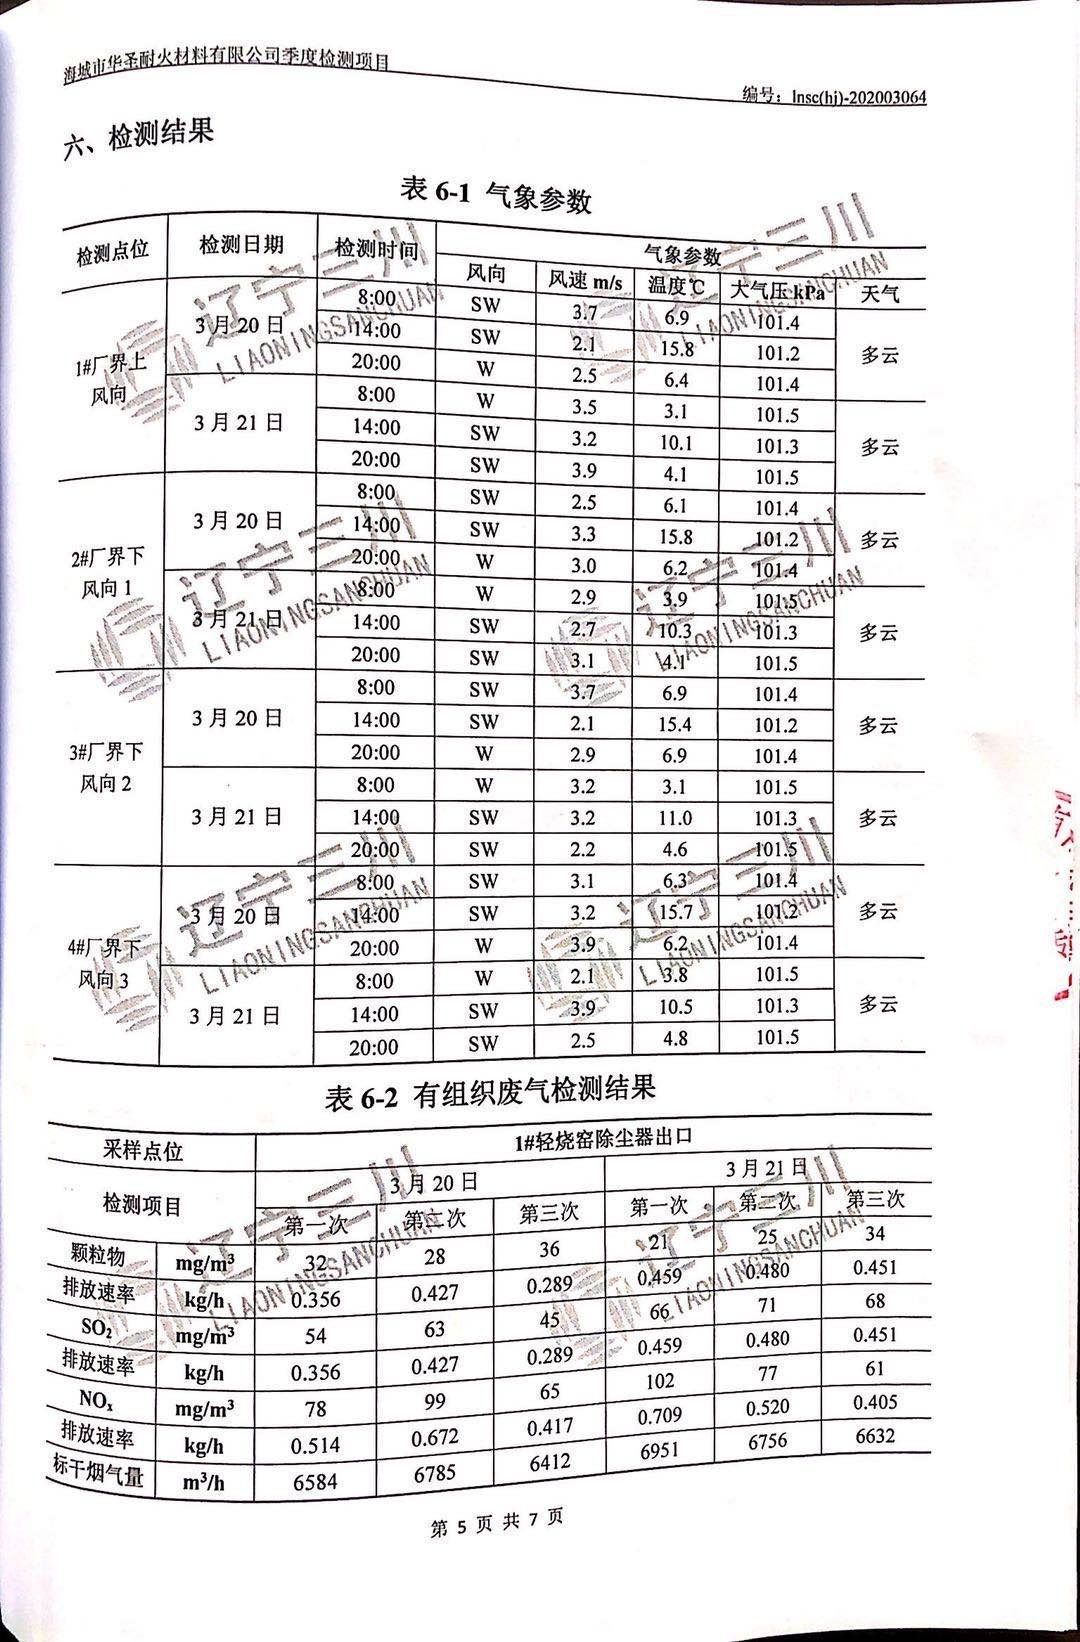 海城市华圣耐火材料有限公司季度检测项目
编号：lnsc(hj)-202003064
六、检测结果
表 6-1 气象参数
检测点位 检测日期 检测时间 气象参数
风向 风速 m/s 温度℃ 大气压 kPa 天气
1#厂界上风向 3月20日 8:00 SW 3.7 6.9 101.4 多云
14:00 SW 2.1 15.8 101.2
20:00 W 2.5 6.4 101.4
3月21日 8:00 W 3.5 3.1 101.5 多云
14:00 SW 3.2 10.1 101.3
20:00 SW 3.9 4.1 101.5
2#厂界下风向1 3月20日 8:00 SW 2.5 6.1 101.4 多云
14:00 SW 3.3 15.8 101.2
20:00 W 3.0 6.2 101.4
3月21日 8:00 W 2.9 3.9 101.5 多云
14:00 SW 2.7 10.3 101.3
20:00 SW 3.1 4.1 101.5
3#厂界下风向2 3月20日 8:00 SW 3.7 6.9 101.4 多云
14:00 SW 2.1 15.4 101.2
20:00 W 2.9 6.9 101.4
3月21日 8:00 W 3.2 3.1 101.5 多云
14:00 SW 3.2 11.0 101.3
20:00 SW 2.2 4.6 101.5
4#厂界下风向3 3月20日 8:00 SW 3.1 6.3 101.4 多云
14:00 SW 3.2 15.7 101.2
20:00 W 3.9 6.2 101.4
3月21日 8:00 W 2.1 3.8 101.5 多云
14:00 SW 3.9 10.5 101.3
20:00 SW 2.5 4.8 101.5
表 6-2 有组织废气检测结果
采样点位 1#轻烧窑除尘器出口
检测项目 3月20日 3月21日
第一次 第二次 第三次 第一次 第二次 第三次
颗粒物 mg/m³ 32 28 36 21 25 34
排放速率 kg/h 0.356 0.427 0.289 0.459 0.480 0.451
SO₂ mg/m³ 54 63 45 66 71 68
排放速率 kg/h 0.356 0.427 0.289 0.459 0.480 0.451
NOₓ mg/m³ 78 99 65 102 77 61
排放速率 kg/h 0.514 0.672 0.417 0.709 0.520 0.405
标干烟气量 m³/h 6584 6785 6412 6951 6756 6632
第 5 页 共 7 页
辽宁三川
LIAONINGSANCHUAN
辽宁三川
LIAONINGSANCHUAN
辽宁三川
LIAONINGSANCHUAN
辽宁三川
LIAONINGSANCHUAN
辽宁三川
LIAONINGSANCHUAN
辽宁三川
LIAONINGSANCHUAN
辽宁三川
LIAONINGSANCHUAN
辽宁三川
LIAONINGSANCHUAN